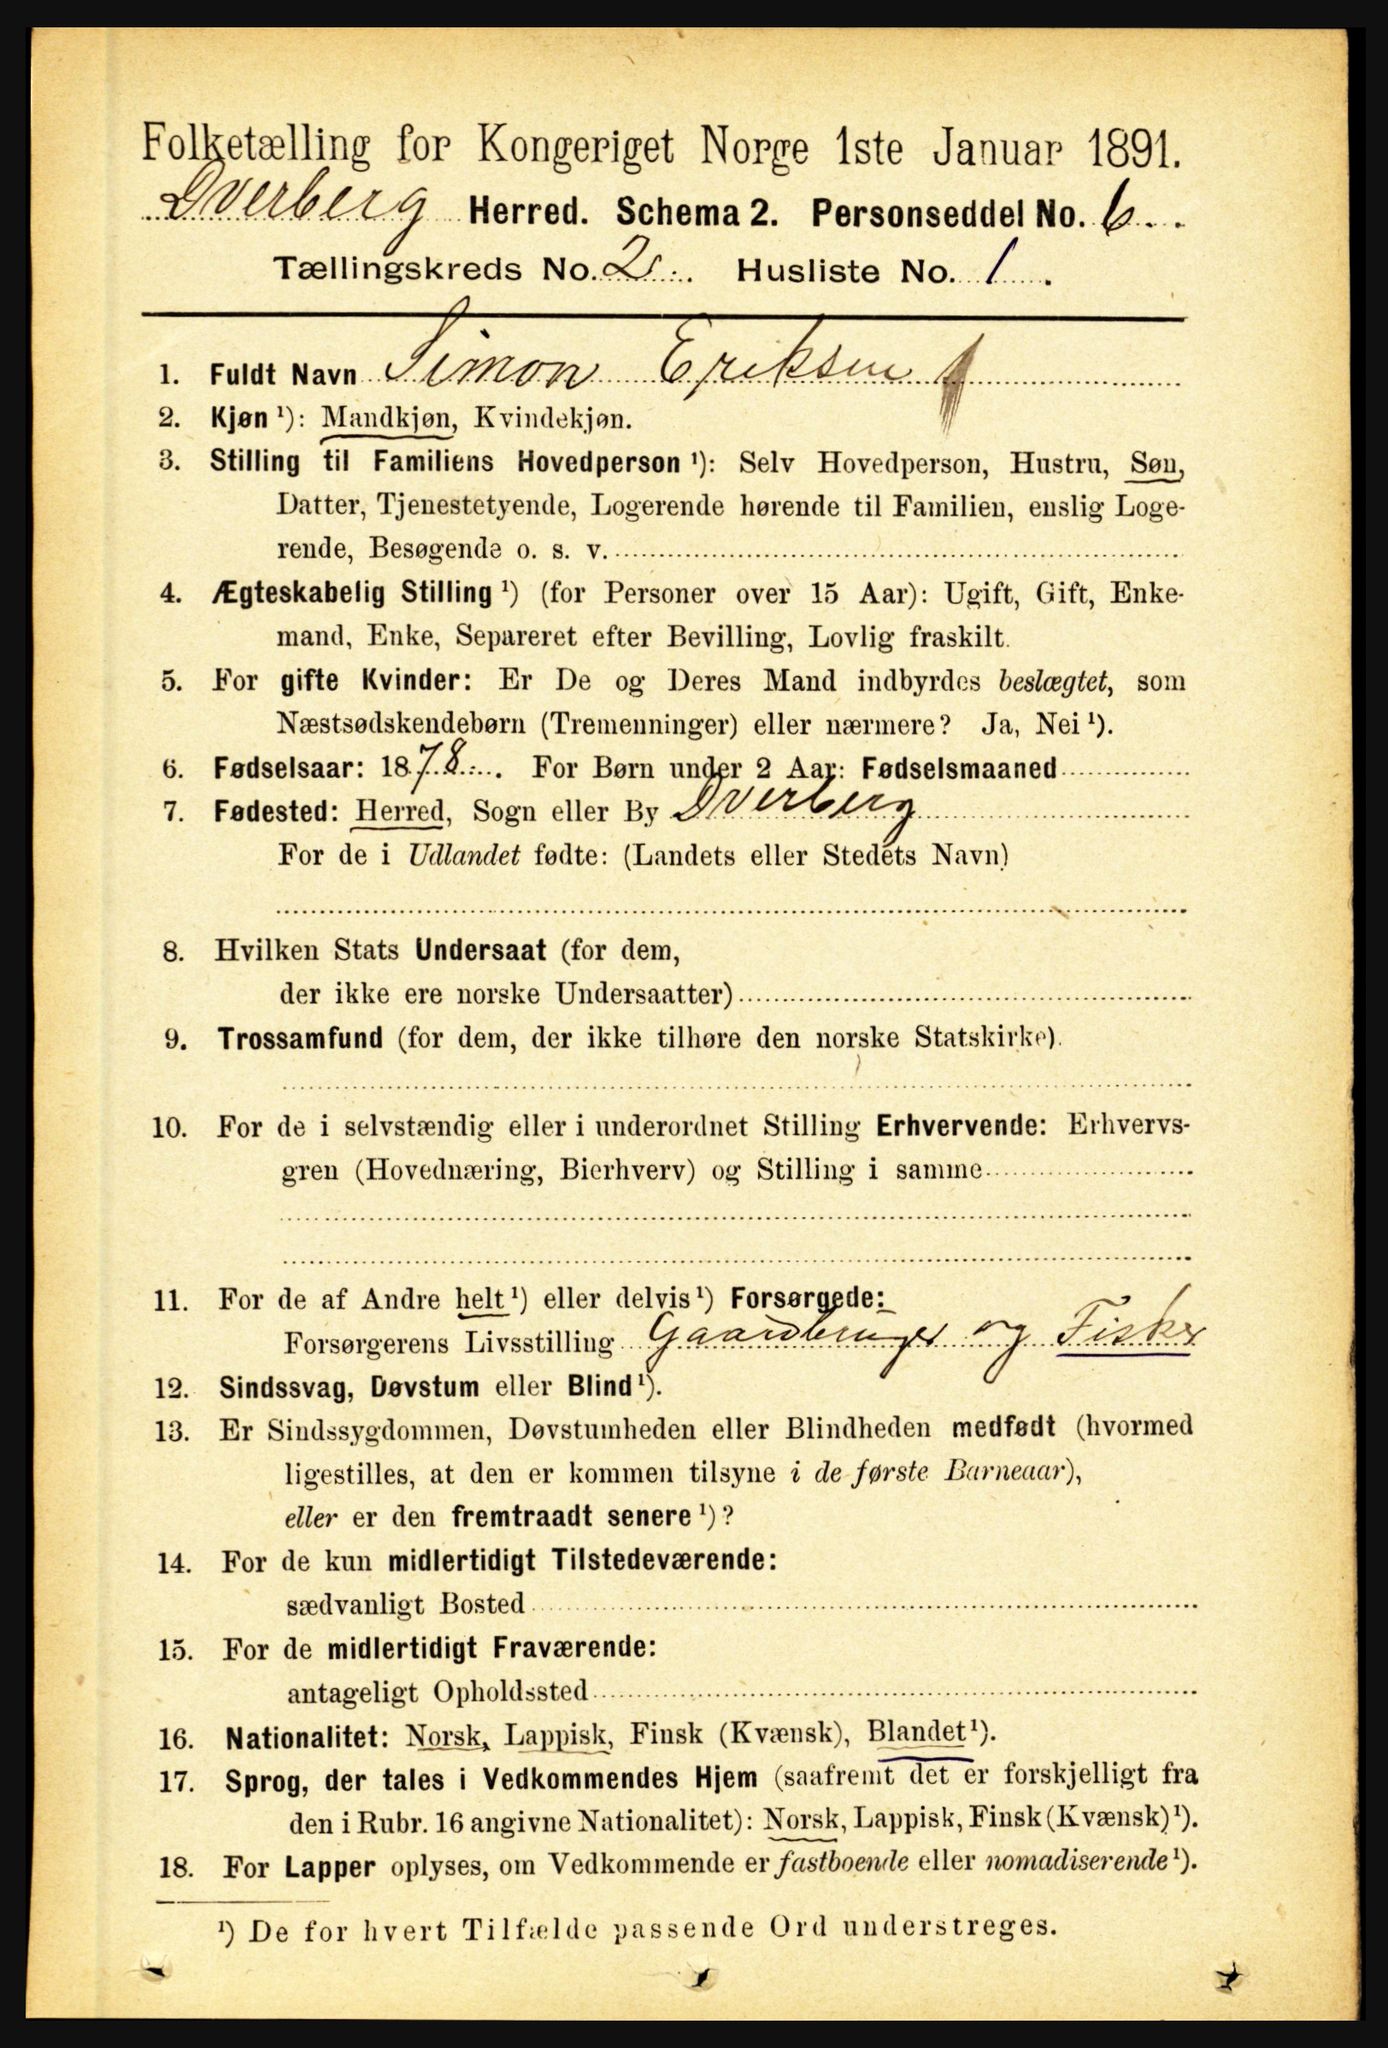 Folketælling for Kongeriget Norge 1ste Januar 1891.
Dverberg Herred. Schema 2. Personseddel No. 6.
Tællingskreds No. 2. Husliste No. 1.
1. Fuldt Navn Simon Eriksen
2. Kjøn ¹): Mandkjøn, Kvindekjøn.
3. Stilling til Familiens Hovedperson ¹): Selv Hovedperson, Hustru, Søn,
Datter, Tjenestetyende, Logerende hørende til Familien, enslig Loge-
rende, Besøgende o. s. v.
4. Ægteskabelig Stilling ¹) (for Personer over 15 Aar): Ugift, Gift, Enke-
mand, Enke, Separeret efter Bevilling, Lovlig fraskilt.
5. For gifte Kvinder: Er De og Deres Mand indbyrdes beslægtet, som
Næstsødskendebørn (Tremenninger) eller nærmere? Ja, Nei ¹).
6. Fødselsaar: 1878. For Børn under 2 Aar: Fødselsmaaned
7. Fødested: Herred, Sogn eller By Dverberg
For de i Udlandet fødte: (Landets eller Stedets Navn)
8. Hvilken Stats Undersaat (for dem,
der ikke ere norske Undersaatter)
9. Trossamfund (for dem, der ikke tilhøre den norske Statskirke).
10. For de i selvstændig eller i underordnet Stilling Erhvervende: Erhvervs-
gren (Hovednæring, Bierhverv) og Stilling i samme
11. For de af Andre helt ¹) eller delvis ¹) Forsørgede:
Forsørgerens Livsstilling Gaardbruger og Fisker
12. Sindssvag, Døvstum eller Blind ¹).
13. Er Sindssygdommen, Døvstumheden eller Blindheden medfødt (hvormed
ligestilles, at den er kommen tilsyne i de første Barneaar),
eller er den fremtraadt senere ¹)?
14. For de kun midlertidigt Tilstedeværende:
sædvanligt Bosted
15. For de midlertidigt Fraværende:
antageligt Opholdssted
16. Nationalitet: Norsk, Lappisk, Finsk (Kvænsk), Blandet ¹).
17. Sprog, der tales i Vedkommendes Hjem (saafremt det er forskjelligt fra
den i Rubr. 16 angivne Nationalitet): Norsk, Lappisk, Finsk (Kvænsk) ¹).
18. For Lapper oplyses, om Vedkommende er fastboende eller nomadiserende ¹).
¹) De for hvert Tilfælde passende Ord understreges.